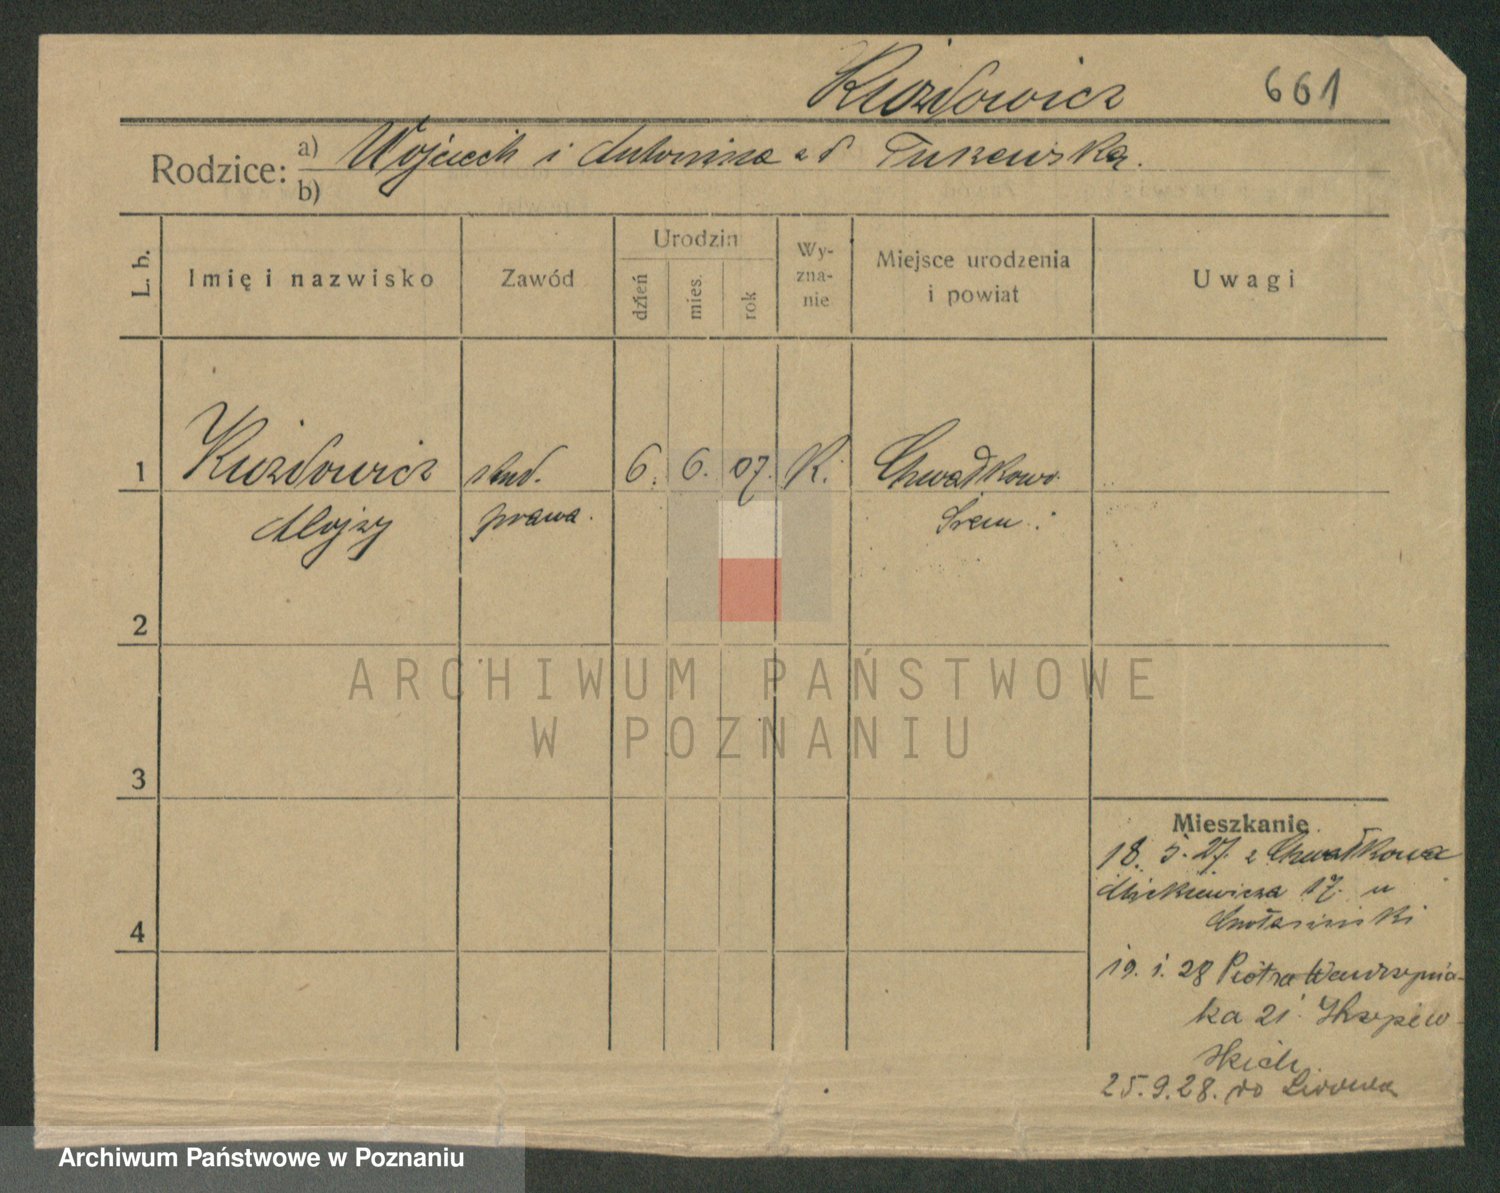 Kuzdowicz 661
Rodzice: a) Wojciech i Antonina z d Turewska.
b)
L. b. Imię i nazwisko Zawód Urodzin dzień mies. rok Wy-zna-nie Miejsce urodzenia i powiat Uwagi
1 Kuzdowicz stud. 6. 6. 07. K. Chwałkowo
Alojzy prawa. Śrem.
2
ARCHIWUM PAŃSTWOWE
W POZNANIU
3
Mieszkanie
18. 5. 27. z Chwałkowa
Mickiewicza 17. u
4
19. 1. 28 Piotra Wawrzynia-
ka 21
skich.
25.9.28. do Lwowa
Archiwum Państwowe w Poznaniu